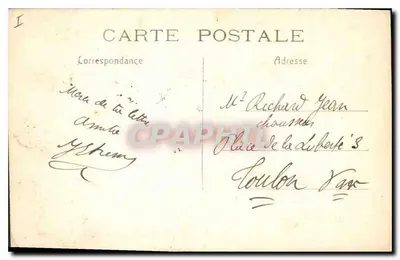 I
CARTE POSTALE
Correspondance
Adresse
Merci de ta lettre
Amitié
Mr Richard Jean
chausseur
Place de la Liberté 3
Toulon Var
CPA